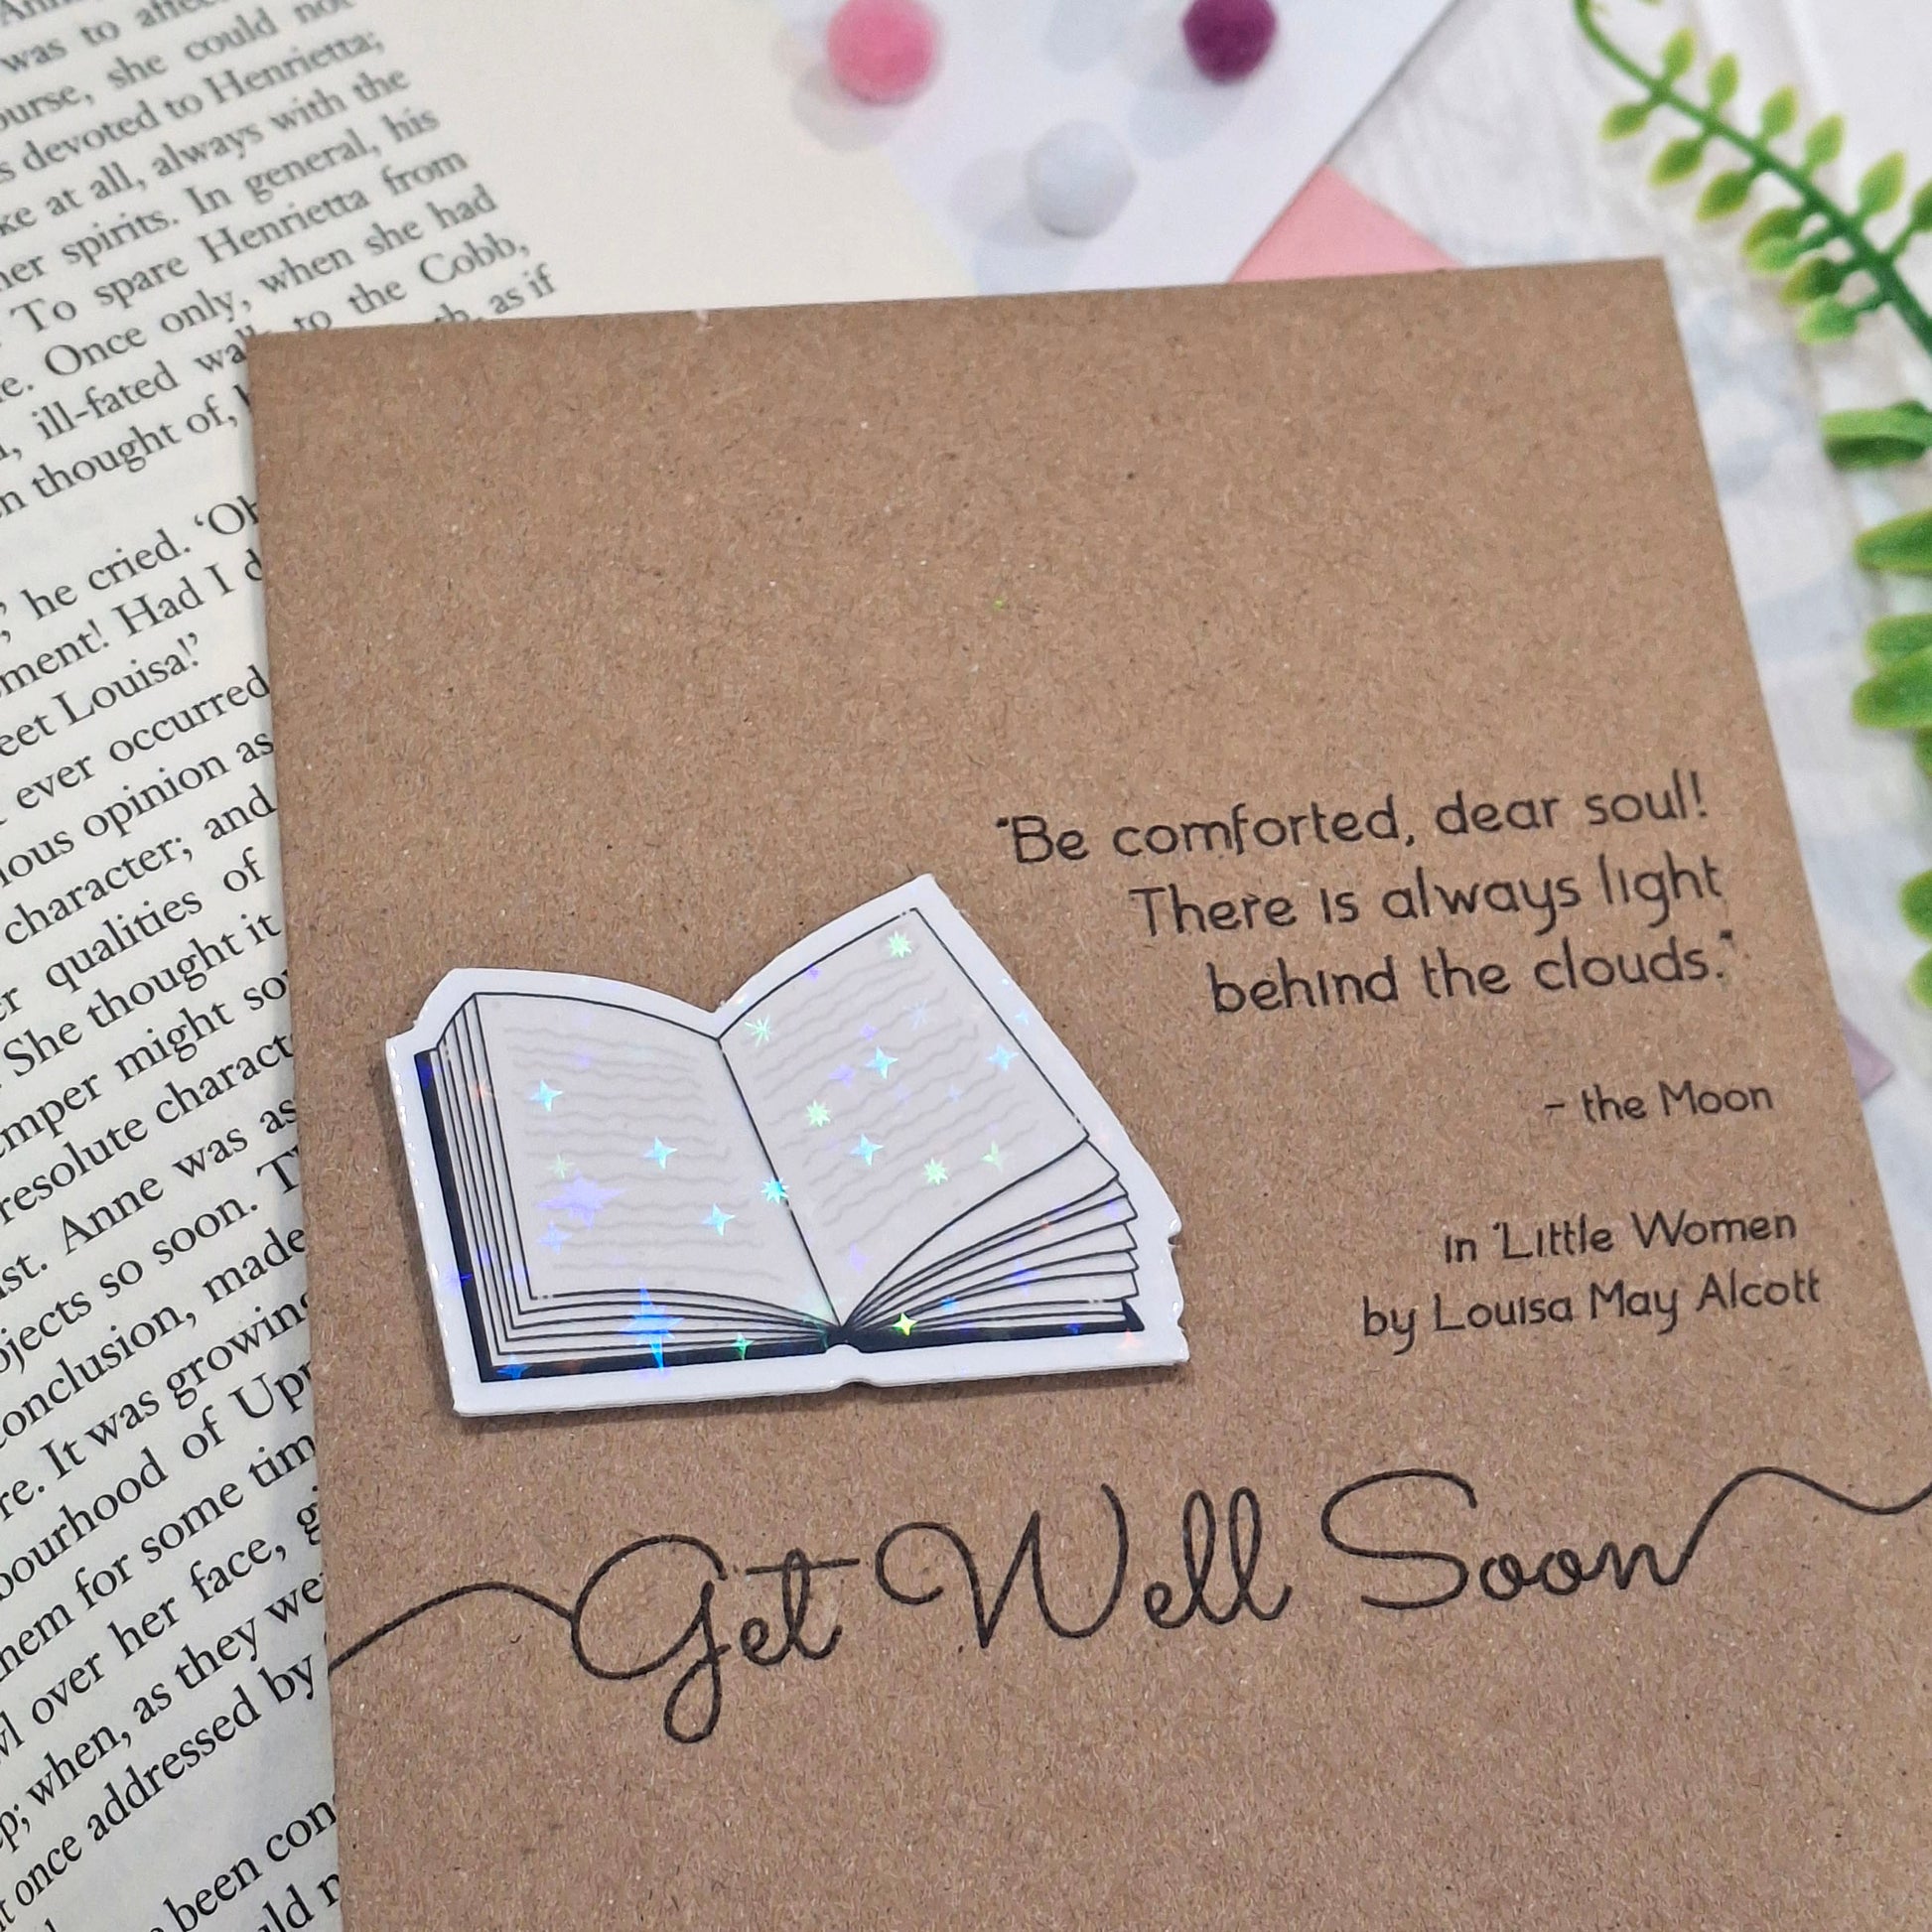 was to
ourse, she could not
devoted to Henrietta;
at all, always with the
her spirits. In general, his
To spare Henrietta from
Once only, when she had
ill-fated to the Cobb,
thought of, as if
he cried.
Had I
Louisa!'
ever occurred
opinion as
character; and
qualities of
She thought it
might
resolute
Anne was as
so soon.
conclusion, made
It was growing
of
for some
over her face,
when, as they
once addressed by
been
"Be comforted, dear soul!
There is always light
behind the clouds."
- the Moon
in 'Little Women
by Louisa May Alcott
Get Well Soon